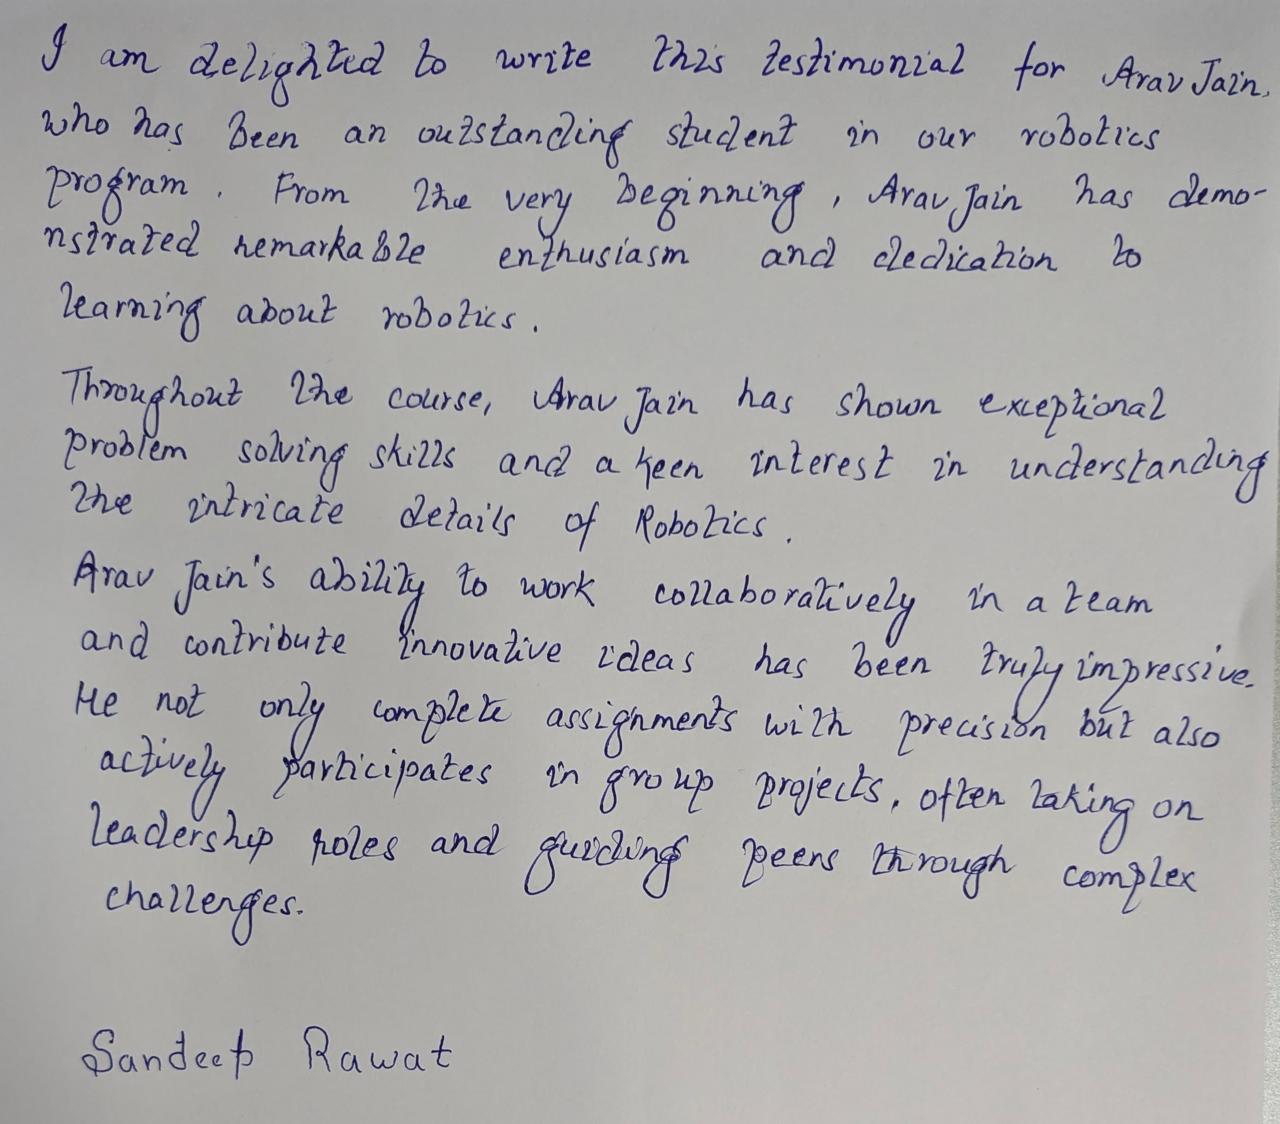 I am delighted to write this testimonial for Arav Jain,
who has been an outstanding student in our robotics
program. From the very beginning, Arav Jain has demo-
nstrated remarkable enthusiasm and dedication to
learning about robotics.
Throughout the course, Arav Jain has shown exceptional
problem solving skills and a keen interest in understanding
the intricate details of Robotics.
Arav Jain's ability to work collaboratively in a team
and contribute innovative ideas has been truly impressive.
He not only complete assignments with precision but also
actively participates in group projects, often taking on
leadership roles and guiding peers through complex
challenges.
Sandeep Rawat